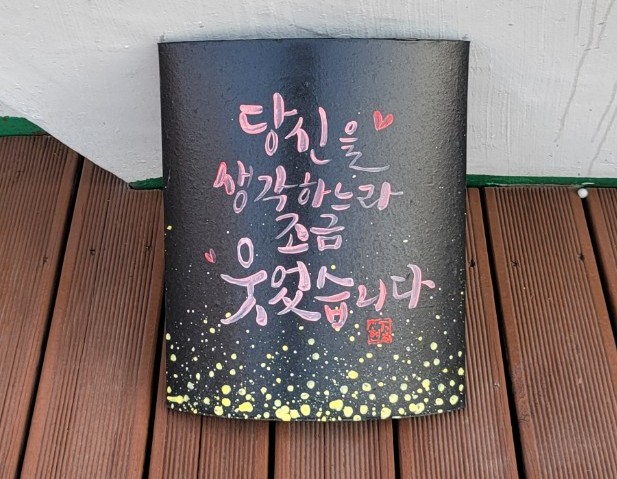 당신을
생각하느라
조금
웃었습니다